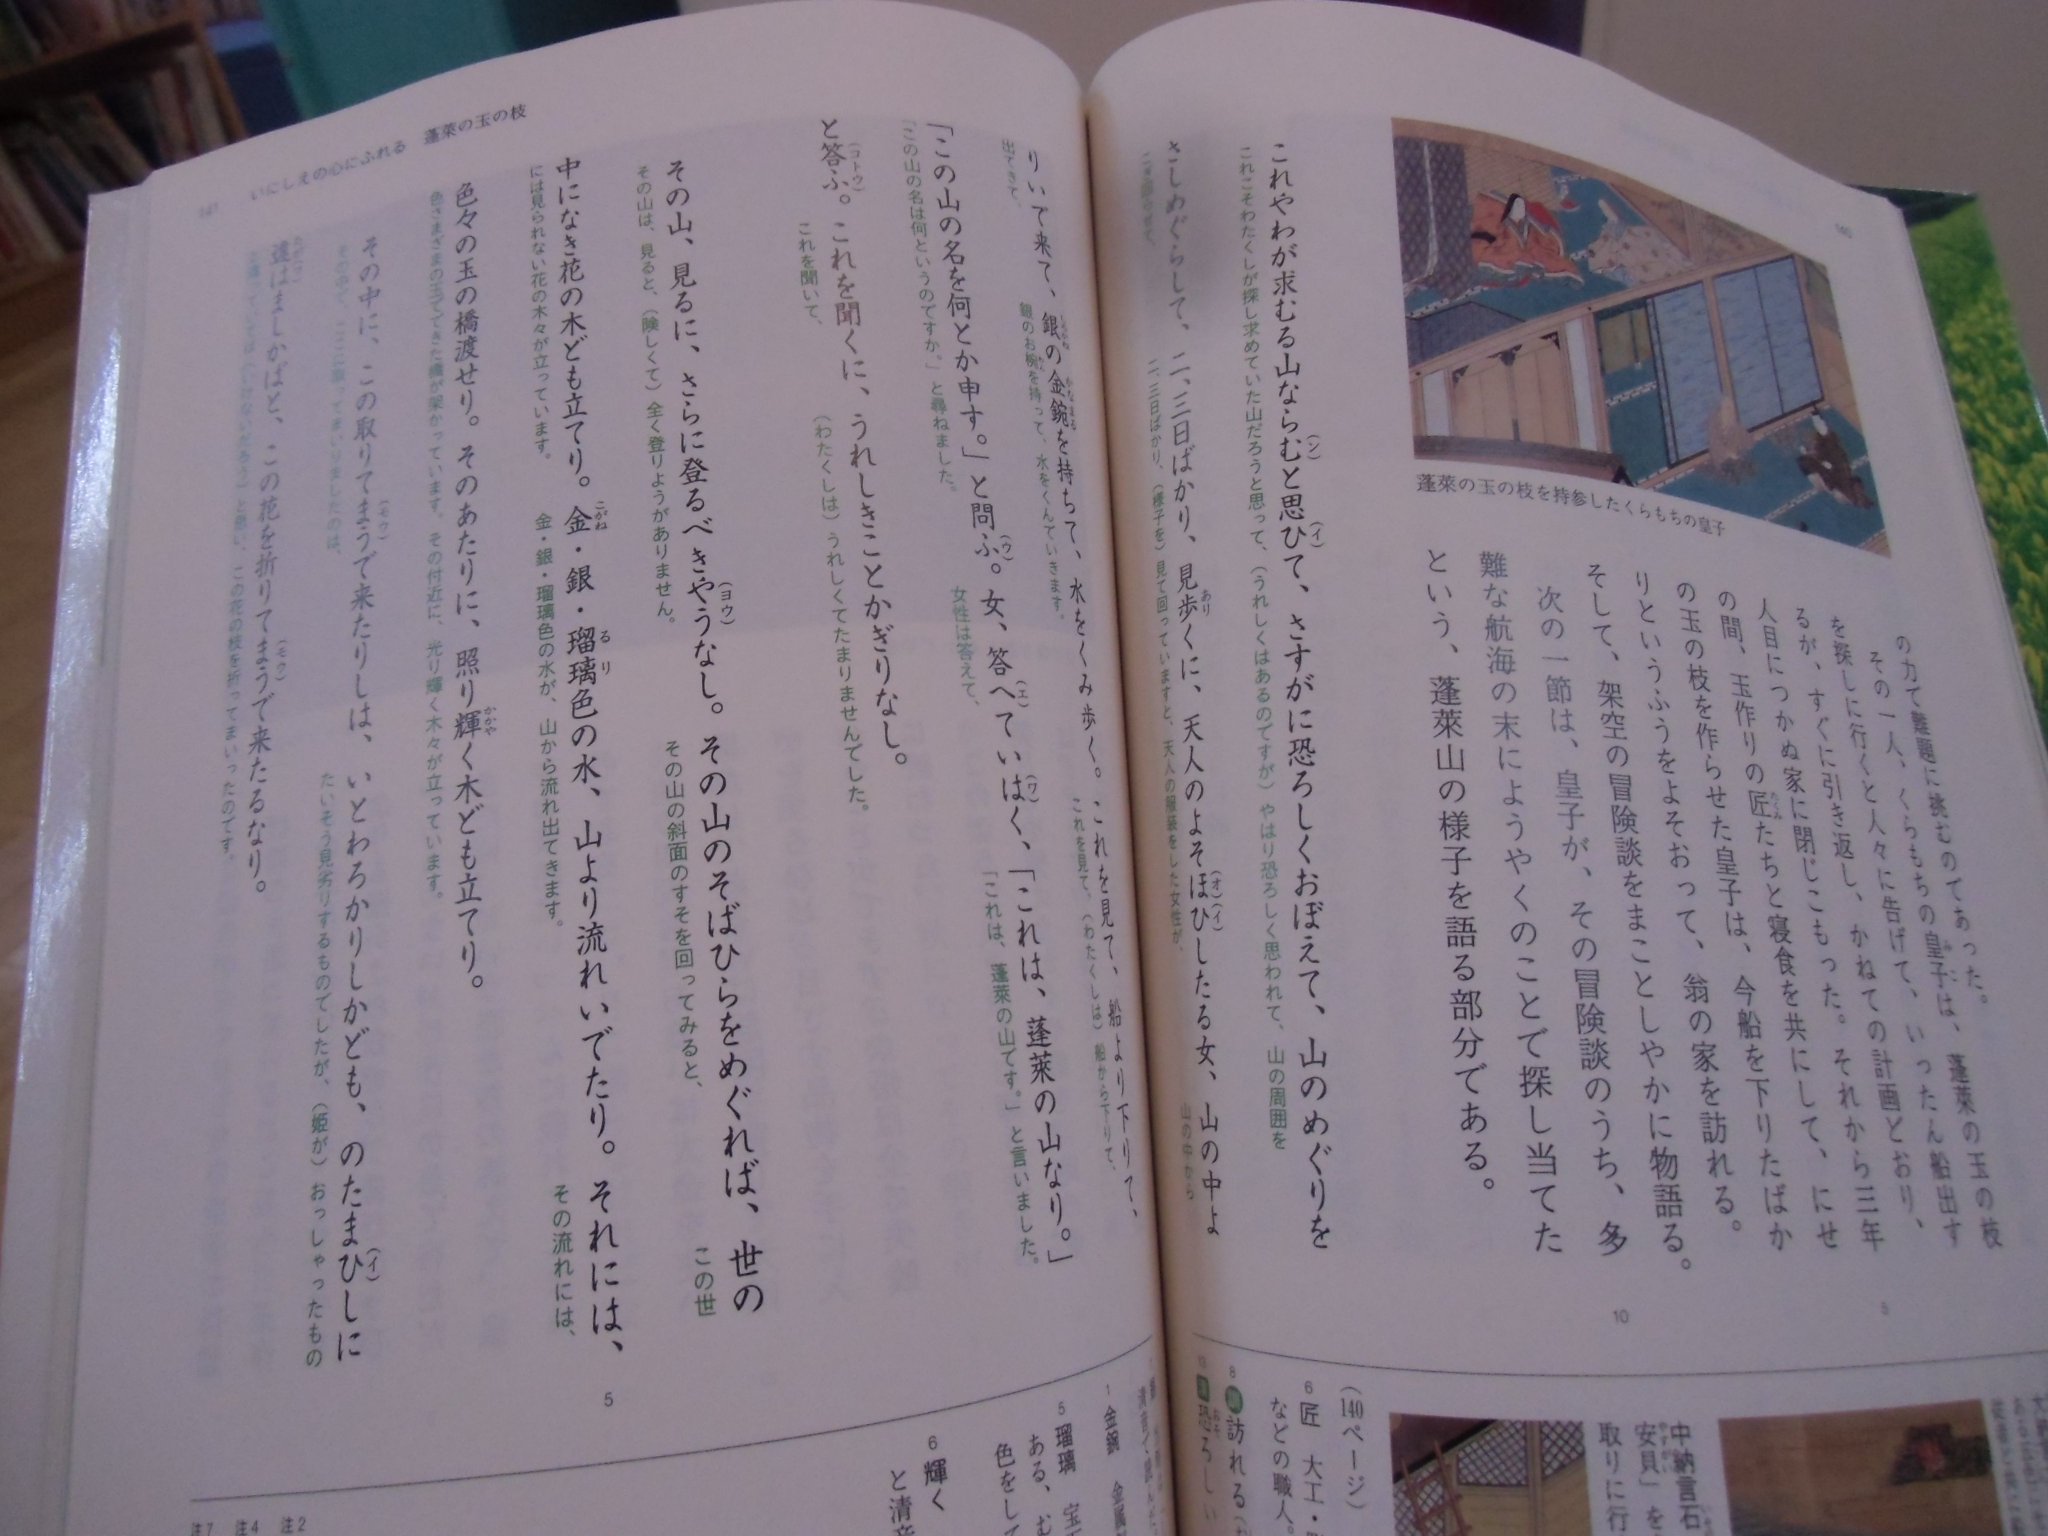 140
蓬萊の玉の枝を持参したくらもちの皇子
の力で難題に挑むのであった。
その一人、くらもちの皇子は、蓬萊の玉の枝
を探しに行くと人々に告げて、いったん船出す
るが、すぐに引き返し、かねての計画どおり、
人目につかぬ家に閉じこもった。それから三年
の間、玉作りの匠たちと寝食を共にして、にせ
の玉の枝を作らせた皇子は、今船を下りたばか
りというふうをよそおって、翁の家を訪れる。
そして、架空の冒険談をまことしやかに物語る。
次の一節は、皇子が、その冒険談のうち、多
難な航海の末にようやくのことで探し当てた
という、蓬萊山の様子を語る部分である。
5
10
これやわが求むる山ならむと思ひて、さすがに恐ろしくおぼえて、山のめぐりを
これこそわたくしが探し求めていた山だろうと思って、(うれしくはあるのですが)やはり恐ろしく思われて、山の周囲を
さしめぐらして、二、三日ばかり、見歩くに、天人のよそほひしたる女、山の中よ
こぎ回らせて、二、三日ばかり、(様子を)見て回っていますと、天人の服装をした女性が、山の中から
りいで来て、銀の金鋺を持ちて、水をくみ歩く。これを見て、船より下りて、
出てきて、銀のお椀を持って、水をくんでいきます。これを見て、(わたくしは)船から下りて、
「この山の名を何とか申す。」と問ふ。女、答へていはく、「これは、蓬萊の山なり。」
「この山の名は何というのですか。」と尋ねました。女性は答えて、「これは、蓬萊の山です。」と言いました。
と答ふ。これを聞くに、うれしきことかぎりなし。
これを聞いて、(わたくしは)うれしくてたまりませんでした。
その山、見るに、さらに登るべきやうなし。その山のそばひらをめぐれば、世の
その山は、見ると、(険しくて)全く登りようがありません。その山の斜面のすそを回ってみると、この世
中になき花の木ども立てり。金・銀・瑠璃色の水、山より流れいでたり。それには、
には見られない花の木々が立っています。金・銀・瑠璃色の水が、山から流れ出てきます。その流れには、
色々の玉の橋渡せり。そのあたりに、照り輝く木ども立てり。
色さまざまの玉でできた橋が架かっています。その付近に、光り輝く木々が立っています。
その中に、この取りてまうで来たりしは、いとわろかりしかども、のたまひしに
その中で、ここに取ってまいりましたのは、たいそう見劣りするものでしたが、(姫が)おっしゃったもの
違はましかばと、この花を折りてまうで来たるなり。
と思い、この花の枝を折ってまいったのです。
5
いにしえの心にふれる 蓬萊の玉の枝
141
(140ページ)
6 匠 大工・
などの職人。
8 訪れる
恐ろしい
中納言石
安貝」を
取りに行
1 金鋺 金属
5 瑠璃 宝石
ある、む
色をして
6 輝く
と清音
注2
注4
注7